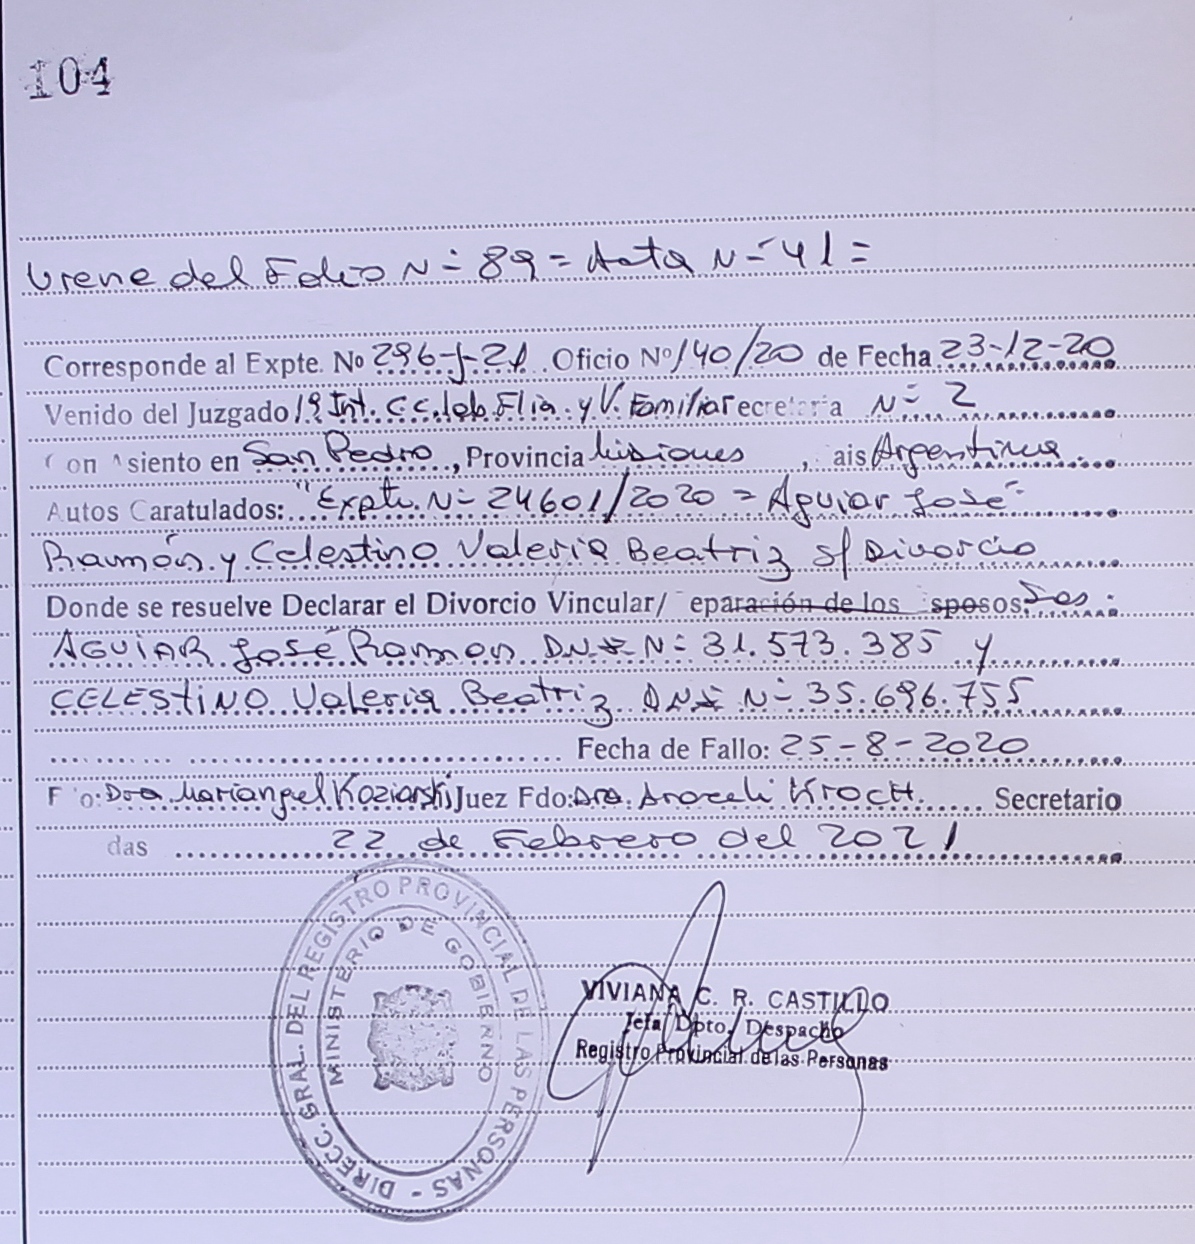 104
Viene del Folio N= 89 = Acta N= 41 =
Corresponde al Expte. No 296-J-21. Oficio Nº 140/20 de Fecha 23-12-20
Venido del Juzgado 1º Int. C.C. lab. Flia. y V. Familiar ecretaria N= 2
on siento en San Pedro, Provincia Misiones, ais Argentina.
Autos Caratulados: "Expte. N= 24601/2020 = Aguiar José
Ramón y Celestino Valeria Beatriz s/ Divorcio
Donde se resuelve Declarar el Divorcio Vincular/ eparación de los sposos. Des:
AGUIAR José Ramon DNI N= 31.573.385 y
CELESTINO Valeria Beatriz DNI N= 35.696.755
Fecha de Fallo: 25-8-2020
F o: Dra. Mariangel Koziarski Juez Fdo: Dra. Araceli Krock. Secretario
das 22 de Febrero del 2021
DIRECC. GRAL. DEL REGISTRO PROVINCIAL DE LAS PERSONAS -
MINISTERIO DE GOBIERNO
VIVIANA C. R. CASTILLO
Jefa Dpto. Despacho
Registro Provincial de las Personas